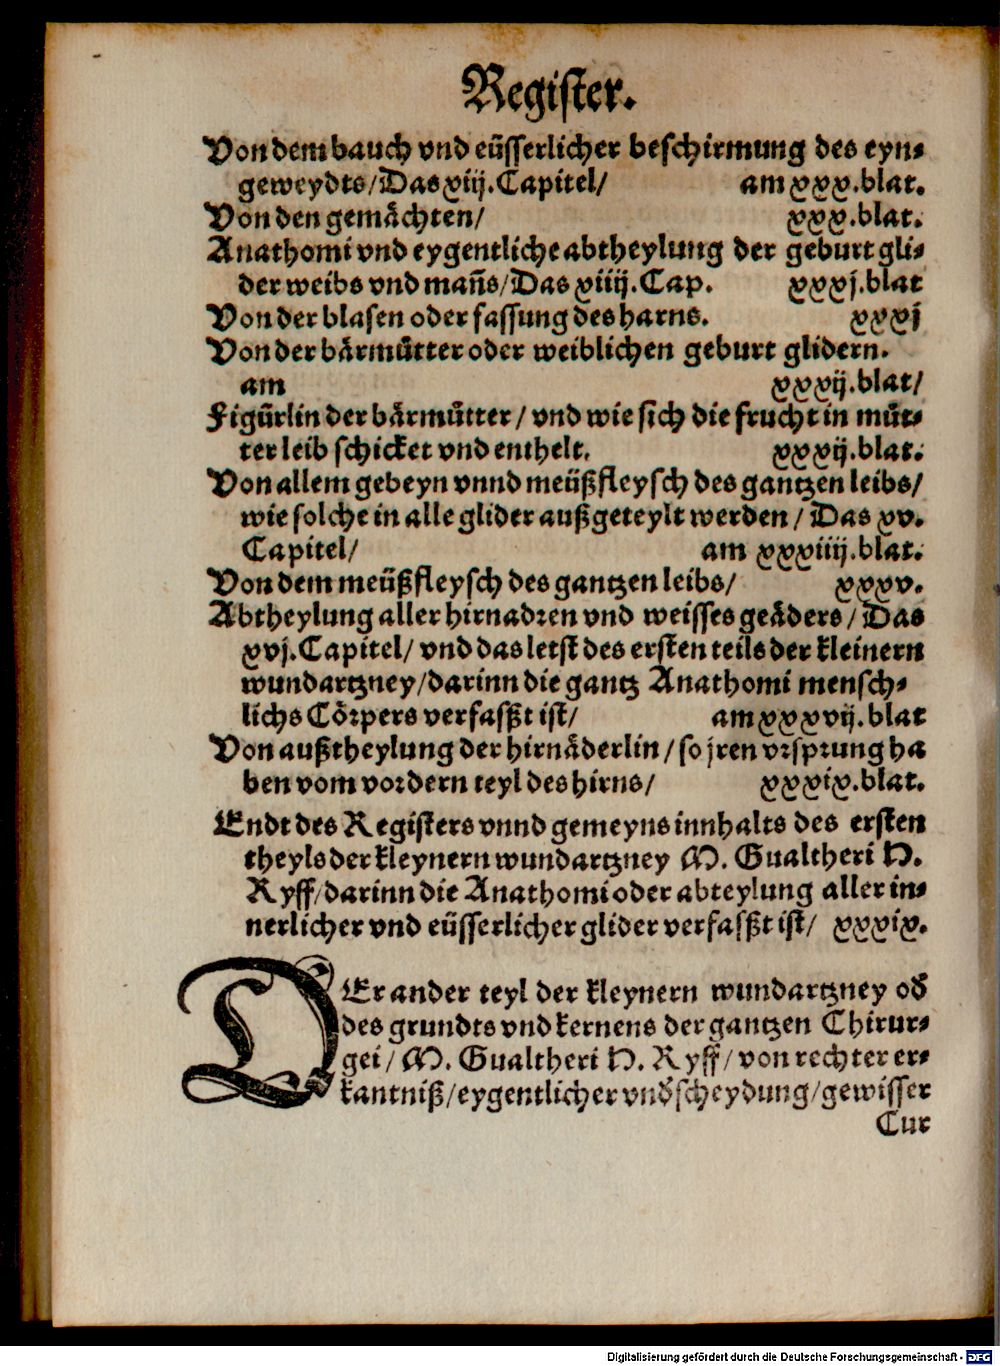 Register.
Von dem bauch vnd eüsserlicher beschirmung des eyn⸗
geweydts/Das xiij.Capitel/ am xxx.blat.
Von den gemächten/ xxx.blat.
Anathomi vnd eygentliche abtheylung der geburt gli⸗
der weibs vnd mañs/Das xiiij.Cap. xxxj.blat
Von der blasen oder fassung des harns. xxxj
Von der bärmůtter oder weiblichen geburt glidern.
am xxxij.blat/
Figürlin der bärmůtter/ vnd wie sich die frucht in můt⸗
ter leib schicket vnd enthelt. xxxij.blat.
Von allem gebeyn vnnd meüßfleysch des gantzen leibs/
wie solche in alle glider außgeteylt werden/ Das xv.
Capitel/ am xxxiiij.blat.
Von dem meüßfleysch des gantzen leibs/ xxxv.
Abtheylung aller hirnadren vnd weisses geäders/ Das
xvj.Capitel/ vnd das letst des ersten teils der kleinern
wundartzney/darinn die gantz Anathomi mensch⸗
lichs Cörpers verfaßt ist/ am xxxvij.blat
Von außtheylung der hirnäderlin/so jren vrsprung ha
ben vom vordern teyl des hirns/ xxxix.blat.
Endt des Registers vnnd gemeyns innhalts des ersten
theyls der kleynern wundartzney M. Gualtheri H.
Ryff/darinn die Anathomi oder abteylung aller in⸗
nerlicher vnd eüsserlicher glider verfaßt ist/ xxxix.
DEr ander teyl der kleynern wundartzney od̕
des grundts vnd kernens der gantzen Chirur⸗
gei/ M. Gualtheri H. Ryff/ von rechter er⸗
kantniß/eygentlicher vnd̕scheydung/gewisser
Cur
Digitalisierung gefördert durch die Deutsche Forschungsgemeinschaft - DFG